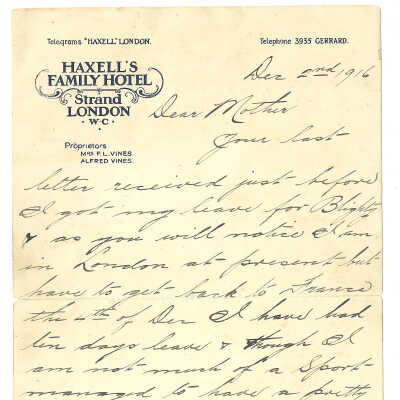 Telegrams "HAXELL" LONDON.
Telephone 3935 GERRARD.
HAXELL'S
FAMILY HOTEL
Strand
LONDON
W·C·
Proprietors
MRS F. L. VINES.
ALFRED VINES.
Dec 2nd 1916
Dear Mother
Your last
letter received just before
I got my leave for Blighty
& as you will notice I am
in London at present but
have to get back to France
the 4th of Dec I have had
ten days leave & though I
am not much of a Sport
managed to have a pretty